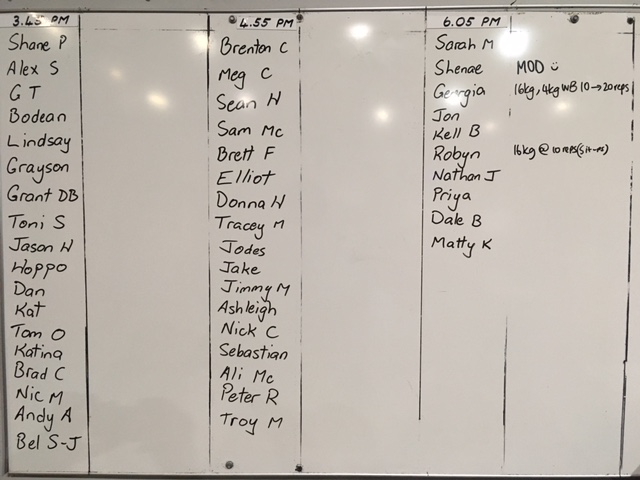 3.45 PM
Shane P
Alex S
GT
Bodean
Lindsay
Grayson
Grant DB
Toni S
Jason H
Hoppo
Dan
Kat
Tom O
Katina
Brad C
Nic M
Andy A
Bel S-J
4.55 PM
Brenton C
Meg C
Sean H
Sam Mc
Brett F
Elliot
Donna H
Tracey M
Jodes
Jake
Jimmy M
Ashleigh
Nick C
Sebastian
Ali Mc
Peter R
Troy M
6.05 PM
Sarah M
Shenae MOD ☺
Georgia 16kg, 4kg WB 10 → 20 reps
Jon
Kell B
Robyn 16kg @ 10 reps
Nathan J
Priya
Dale B
Matty K